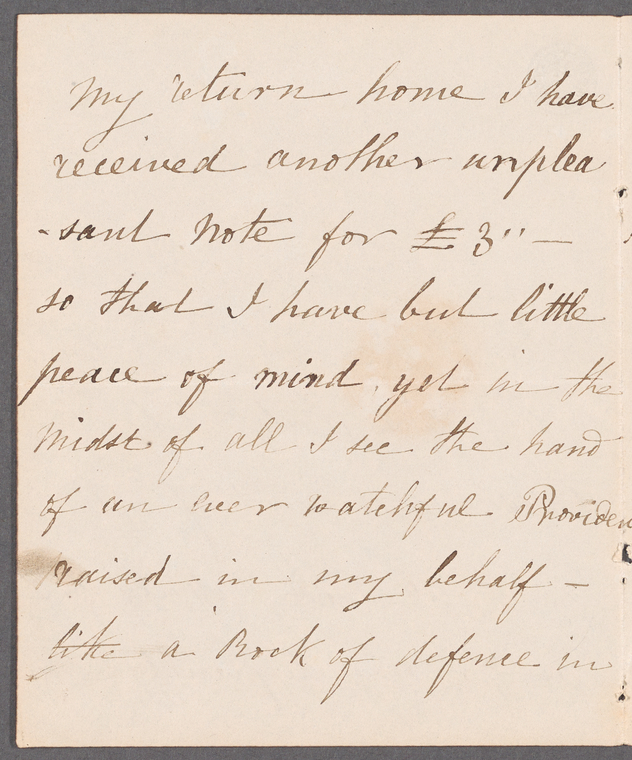 My return home I have
received another unplea
-sant note for £3"—
so that I have but little
peace of mind, yet in the
midst of all I see the hand
of an ever watchful Providen
raised in my behalf —
like a Rock of defence in